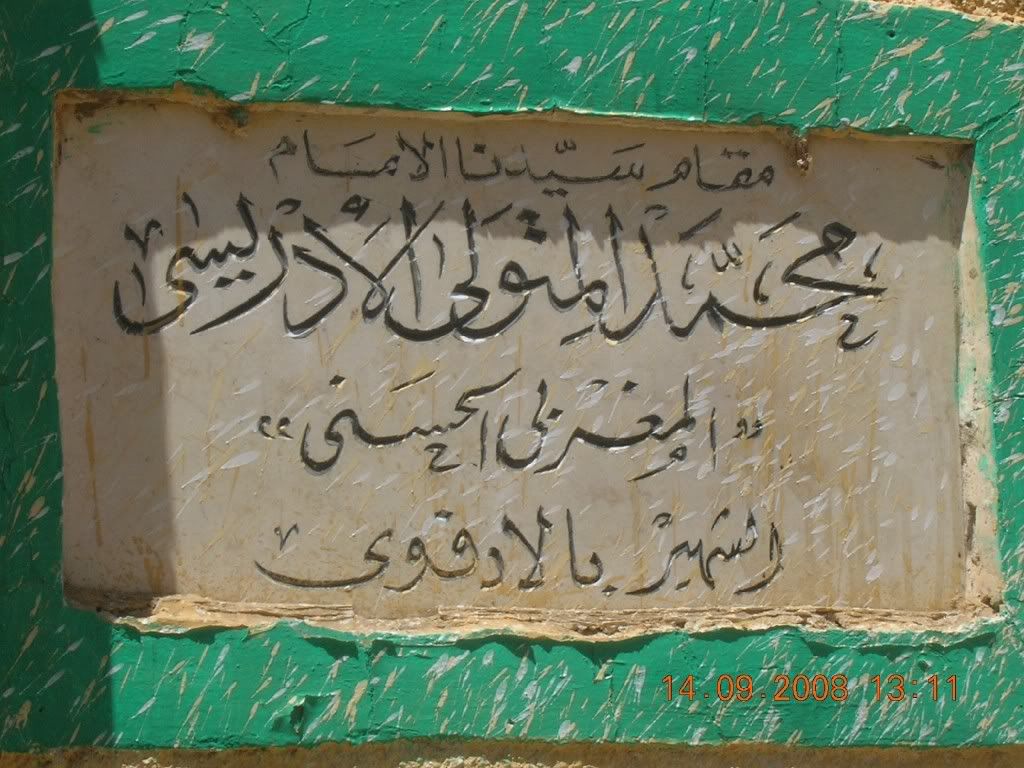 مقام سيّدنا الامام
محمّد المتولى الأدريسى
"المغربى الحسنى"
الشهير بالادفوى
14.09.2008 13:11